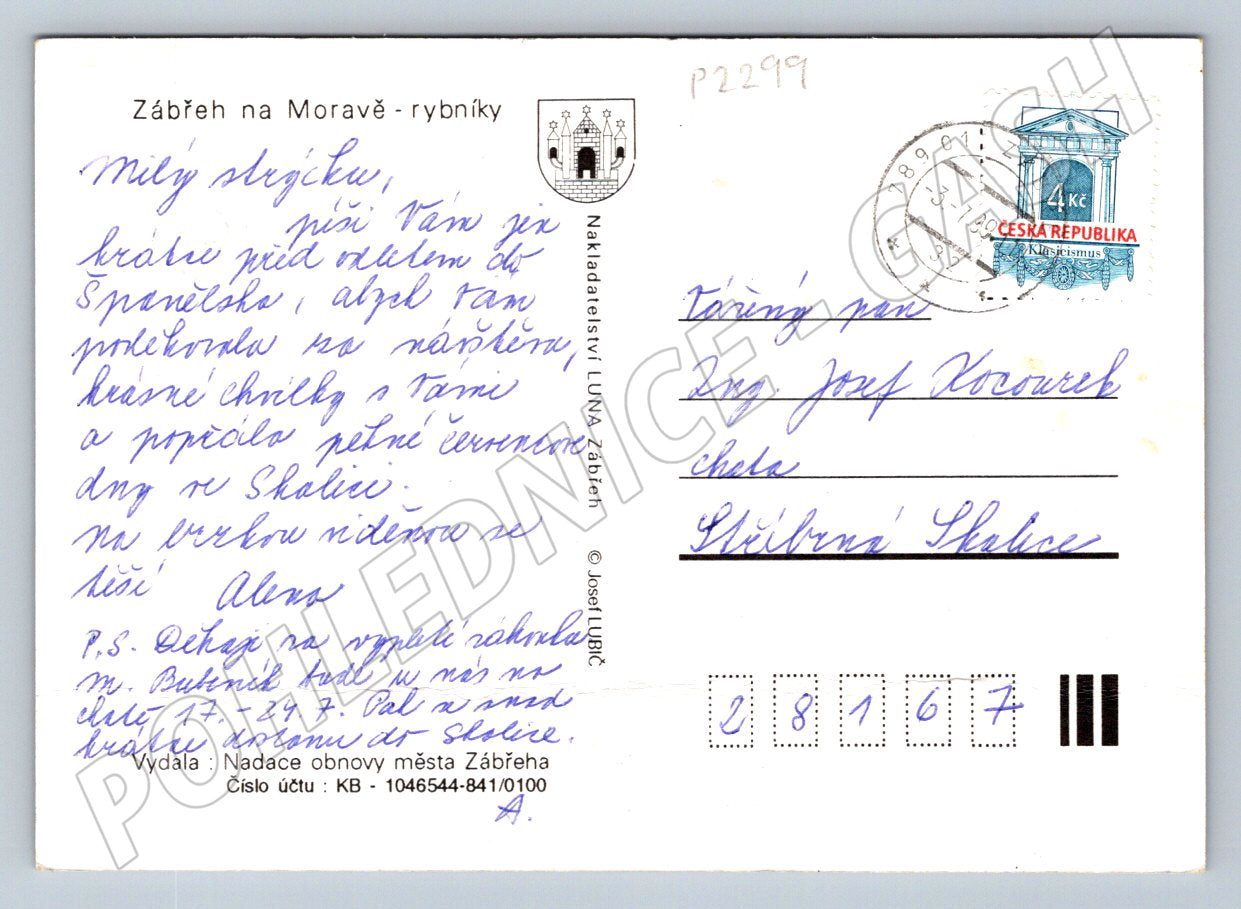 P2299
Zábřeh na Moravě - rybníky
Milý strýčku,
píši Vám jen
krátce před odletem do
Španělska, abych Vám
poděkovala za návštěvu,
krásné chvilky s Vámi
a popřála pěkné červencové
dny ve Skalici.
Na brzkou viděnou se
těší Alena
P.S. Děkuji za
m. Bubeník bude u nás na
chatě 17. - 24. 7. Pak se snad
krátce dostanu do Skalice.
A.
Vydala : Nadace obnovy města Zábřeha
Číslo účtu : KB - 1046544-841/0100
Nakladatelství LUNA Zábřeh © Josef LUBIČ
789 01
-3.-7.99
4 Kč
ČESKÁ REPUBLIKA
Klasicismus
Vážený pan
Ing Josef Kocourek
chata
Stříbrná Skalice
28167
POHLEDNICE - GASH